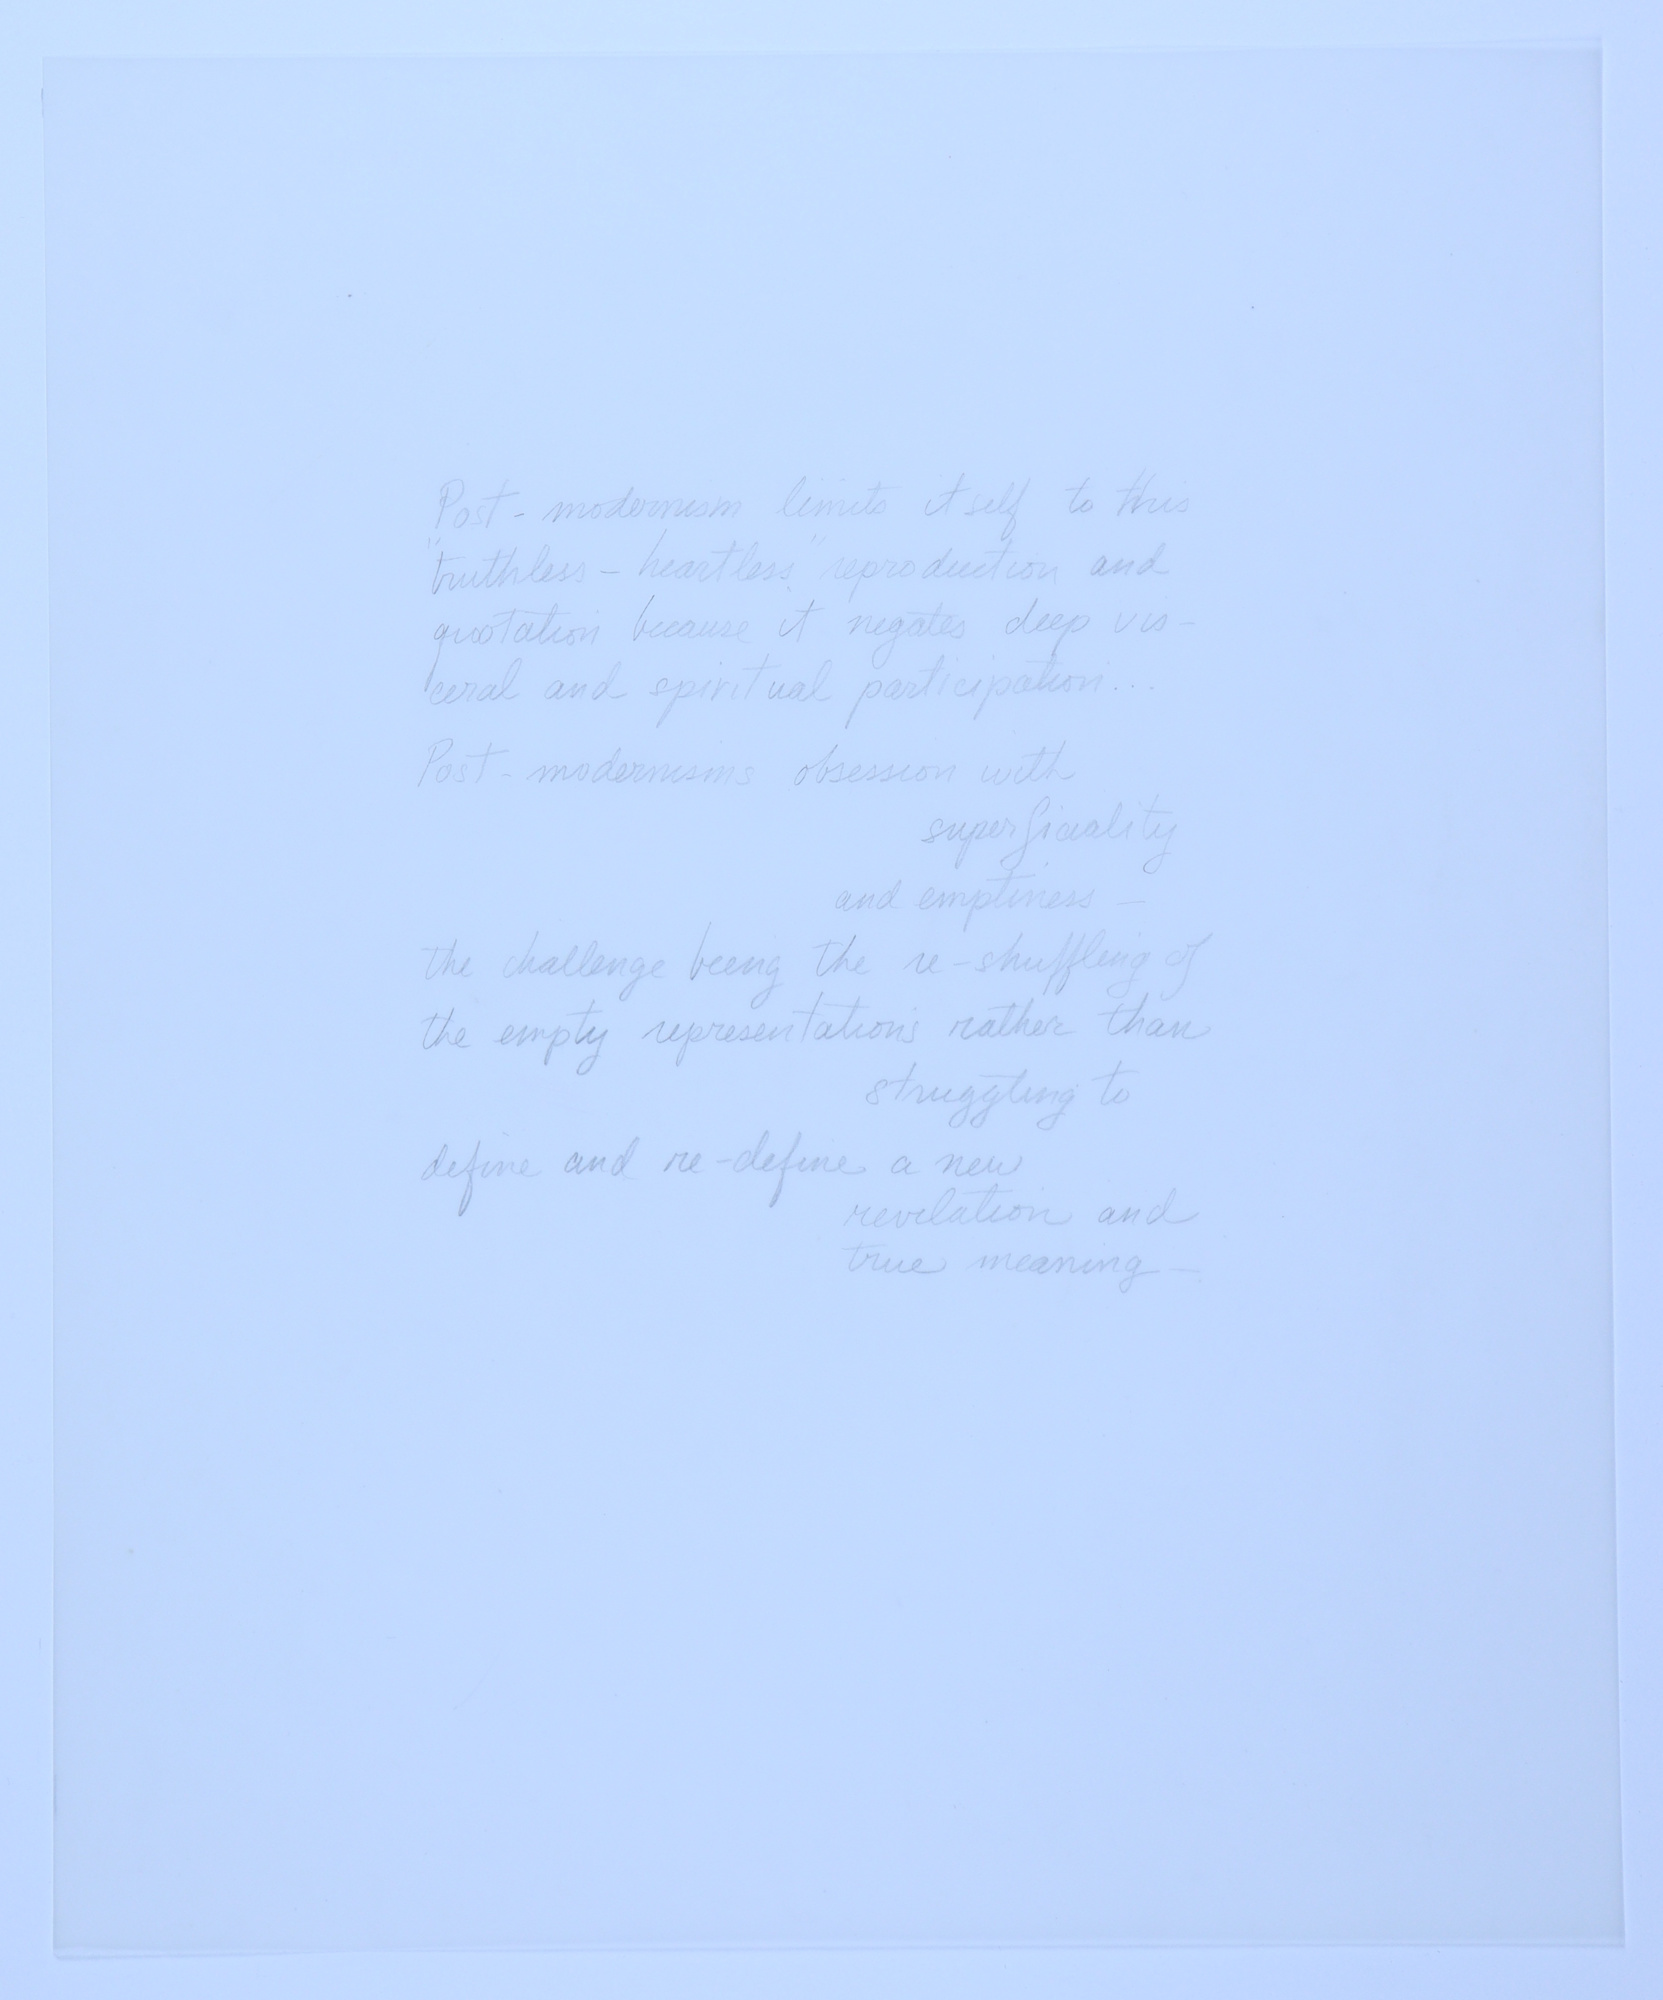 Post-modernism limits itself to this
"truthless - heartless" reproduction and
quotation because it negates deep vis-
ceral and spiritual participation...
Post-modernisms obsession with
superficiality
and emptiness -
the challenge being the re-shuffling of
the empty representations rather than
struggling to
define and re-define a new
revelation and
true meaning -